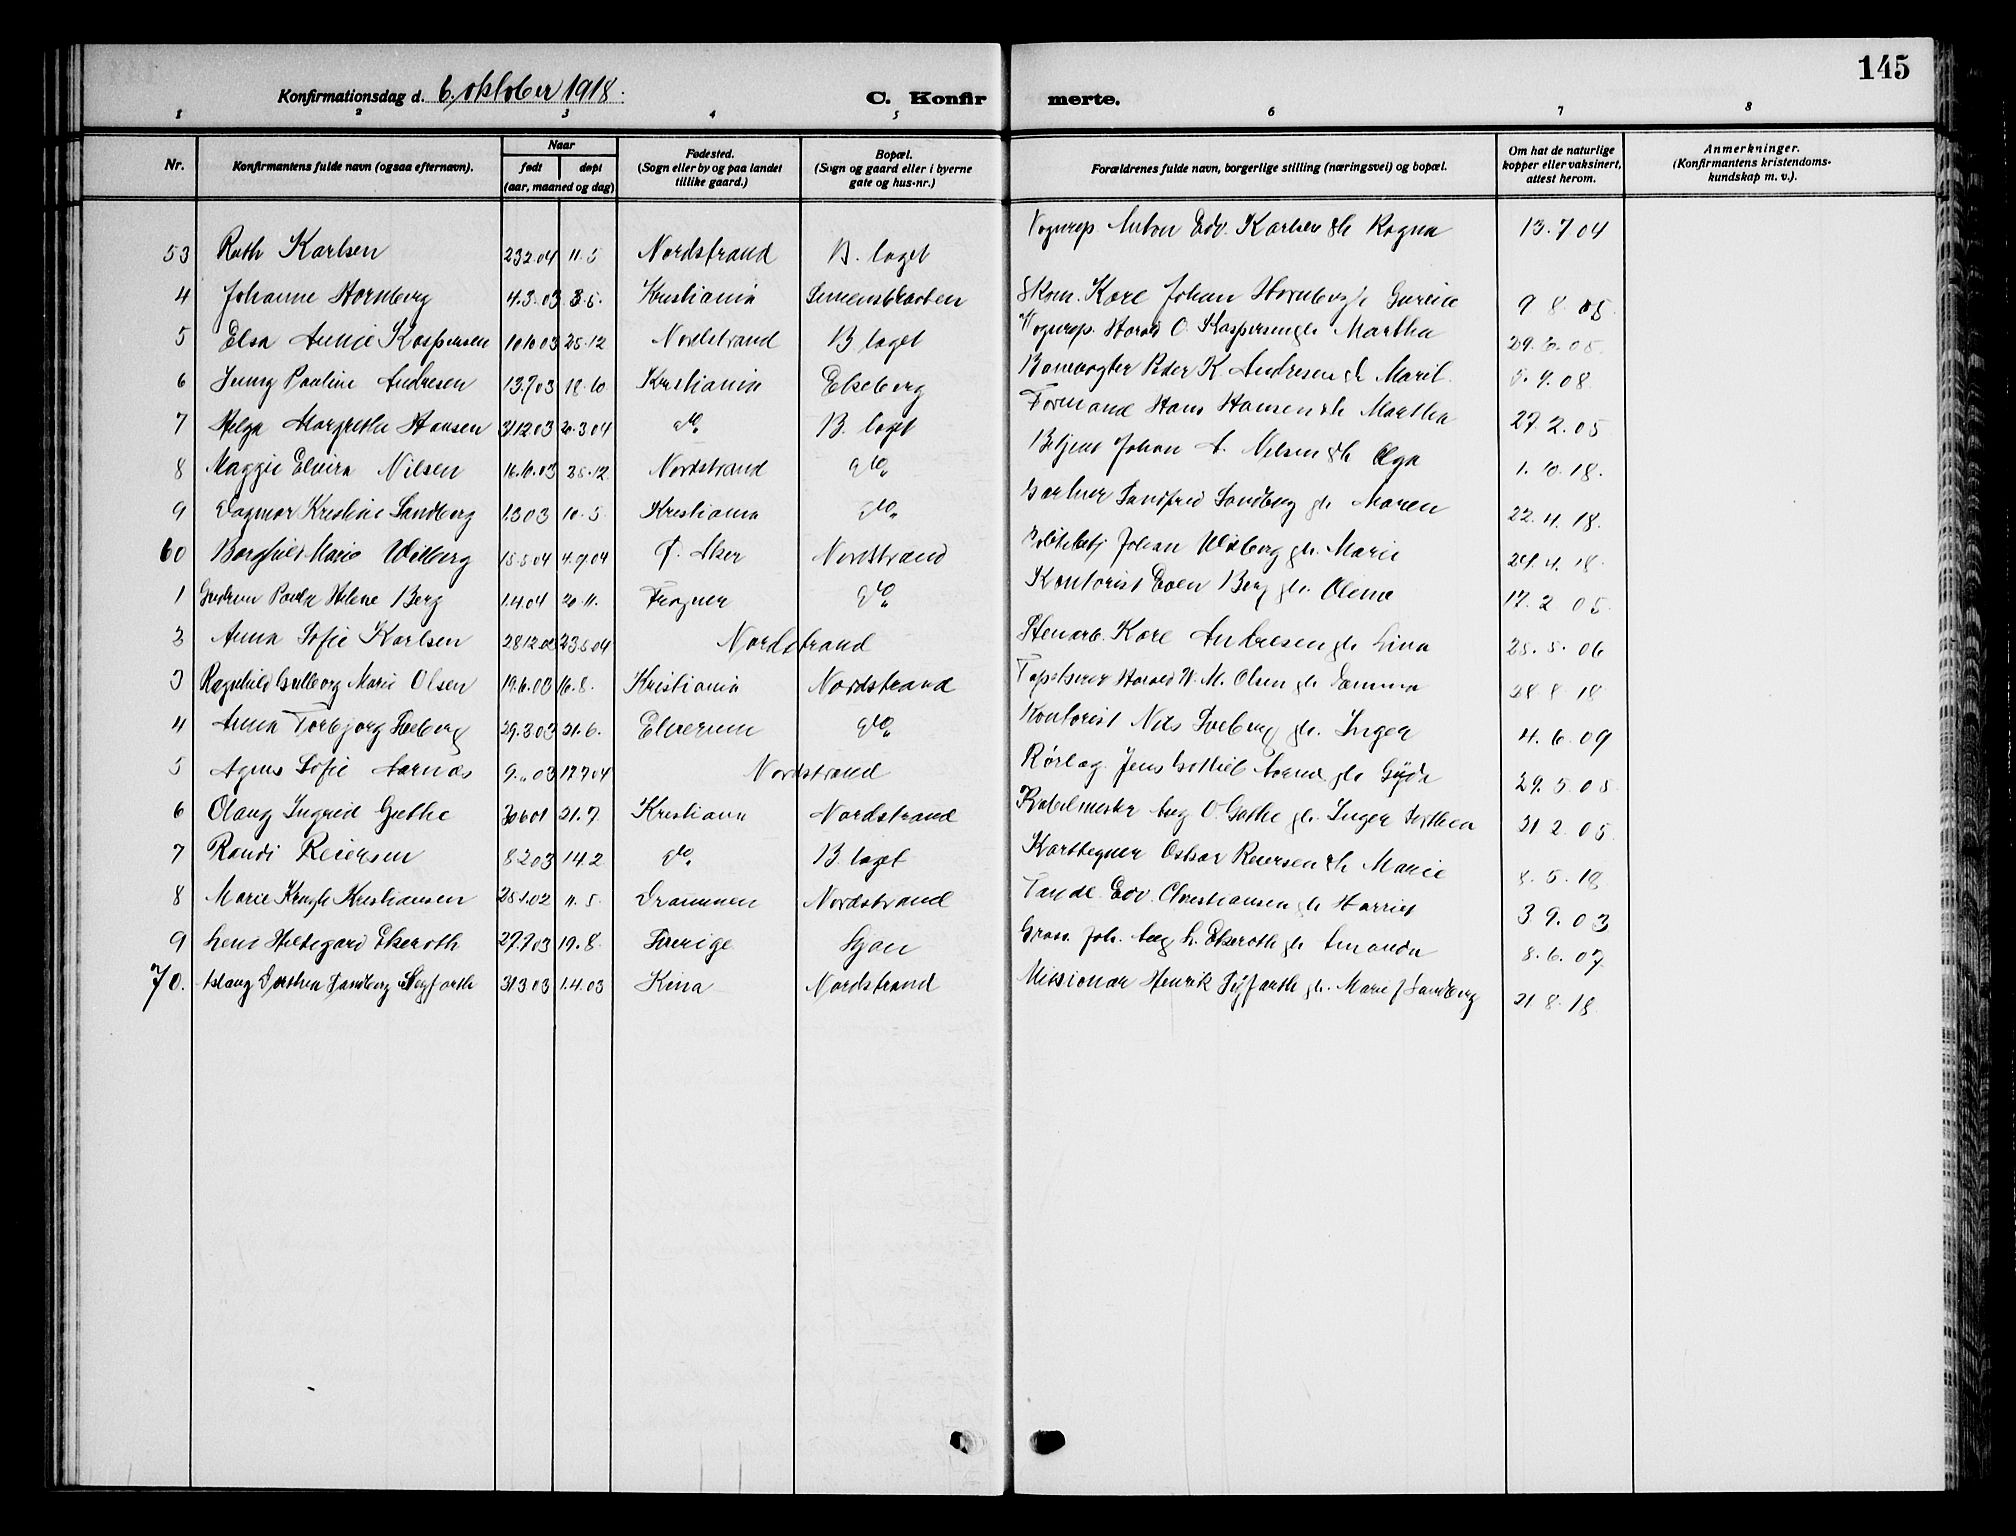 145
Konfirmationsdag d. 6. oktober 1918. C. Konfir merte.
1 2 3 4 5 6 7 8
Nr. Konfirmantens fulde navn (ogsaa efternavn). Naar født døpt (aar, maaned og dag) Fødested. (Sogn eller by og paa landet tillike gaard.) Bopæl. (Sogn og gaard eller i byerne gate og hus-nr.) Forældrenes fulde navn, borgerlige stilling (næringsvei) og bopæl. Om hat de naturlige kopper eller vaksinert, attest herom. Anmerkninger. (Konfirmantens kristendoms- kundskap m. v.).
53 Ruth Karlsen 23.2.04 11.5 Nordstrand B. laget Vognrep Anton Edv. Karlsen & h. Ragna 13.7 04
4 Johanne Hornberg 4.3.03 3.5. Kristiania Skom. Karl Johan Hornberg 9 8. 05
5 Elsa Annie Kaspersen 10.10 03 25.12 Nordstrand B laget Vognrep. Harald O. Kaspersen Martha 29.
6 Jenny Pauline Andresen 13.7 03 18.10 Kristiania Ekeberg Peder K. Andresen & h. Marit. 9.08
7 Helga Margrethe Hansen 31.12.03 20.3 04 do. B. laget Formand Hans Hansen & h Martha 27.2.05
8 Maggie Elvira Nilsen 16.10.03 25.12 Nordstrand do. Johan A. Nilsen & h Olga 1.10.18.
9 Dagmar Kristine Sandberg 1.3 03 10.5 Kristiania do. Gartner Sandberg gh. Maren 22.4.18.
60 Borghild Marie Widberg 15.5 04 4.9 04 Ø. Aker Nordstrand Johan Widberg gh. Marie 24.4.18.
1 Gudrun Paula Helene Berg 1.4.04 20.11. Frogner do. Kontorist Even Berg gh. 17.2 05.
2 Anna Sofie Karlsen 28.12.02 23.5 04 Nordstrand Stenarb. Karl Andresen gh Lina 25.5.06
3 Ragnhild Gulborg Marie Olsen 19.6.03 16.8. Kristiania Nordstrand Harald W. M. Olsen gh 28 8 18
4 Anna Torbjørg Sveberg 29.3 03 21.6. Elverum do. Kontorist Nils Sveberg gh. Inger 4.6.09
5 Agnes Sofie Aarnæs 9. 03 17.7 04 Nordstrand Rørlæg. Jens gh Gyda 29.5 05
6 Olaug Ingrid Gethe 30 6 01 21.7 Kristiania Nordstrand Aug O. Gethe gh. Inger 31 2.05
7 Randi Reiersen 8 2 03 14.2 do. B. laget Karttegner Oskar Reiersen & h Marie 8.5.18
8 Marie Krogh Kristiansen 25.1.02 11.5. Drammen Nordstrand Tandl. Edv. Christiansen gh Harriet 3 9.03
9 Leni Hildegard Ekeroth 27.7 03 19.8. Sverige Ljan Gros. Joh. Aug L. Ekeroth gh Amanda 8.6.07
70. Aslaug Dorthea Sandberg Seyfarth 31 3 03 1.4.03 Kina Nordstrand Missionær Henrik Seyfarth gh. Marie f Sandberg 21 8.18